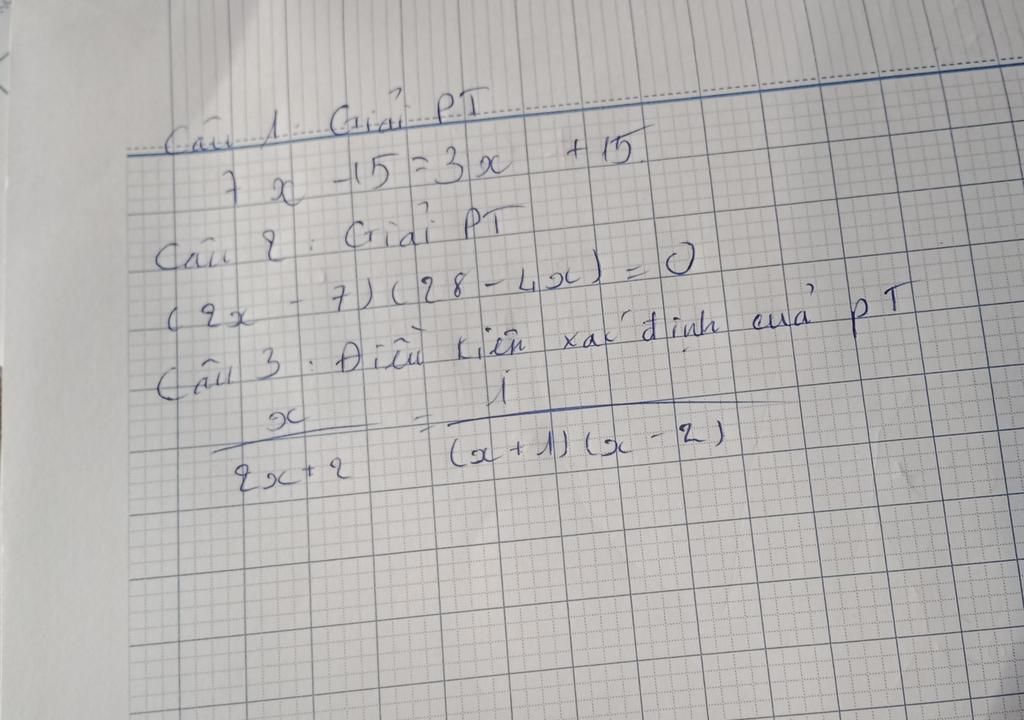 Câu 1: Giải PT
7x - 15 = 3x + 15
Câu 2: Giải PT
(2x - 7)(28 - 4x) = 0
Câu 3: Điều kiện xác định của PT
x/(2x + 2) = 1/((x + 1)(x - 2))